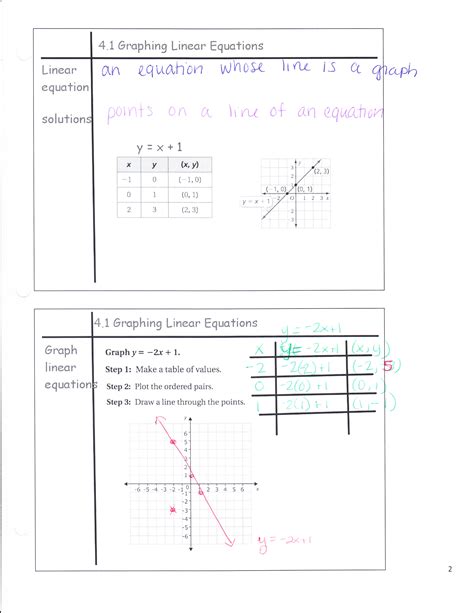 4.1 Graphing Linear Equations
Linear equation
an equation whose line is a graph
solutions
points on a line of an equation
y = x + 1
x y (x, y)
−1 0 (−1, 0)
0 1 (0, 1)
2 3 (2, 3)
y
3
(2, 3)
(−1, 0)
(0, 1)
y = x + 1
−2 0 1 2 3 x
4.1 Graphing Linear Equations
y = -2x+1
Graph linear equations
Graph y = −2x + 1.
Step 1: Make a table of values.
Step 2: Plot the ordered pairs.
Step 3: Draw a line through the points.
x y = -2x+1 (x, y)
-2 -2(-2)+1 (-2, 5)
0 -2(0)+1 (0, 1)
1 -2(1)+1 (1, -1)
y
6
5
4
2
1
-6 -5 -4 -3 -2 -1 0 2 3 4 5 6 x
-2
-3
-4
-5
-6
y = -2x+1
2